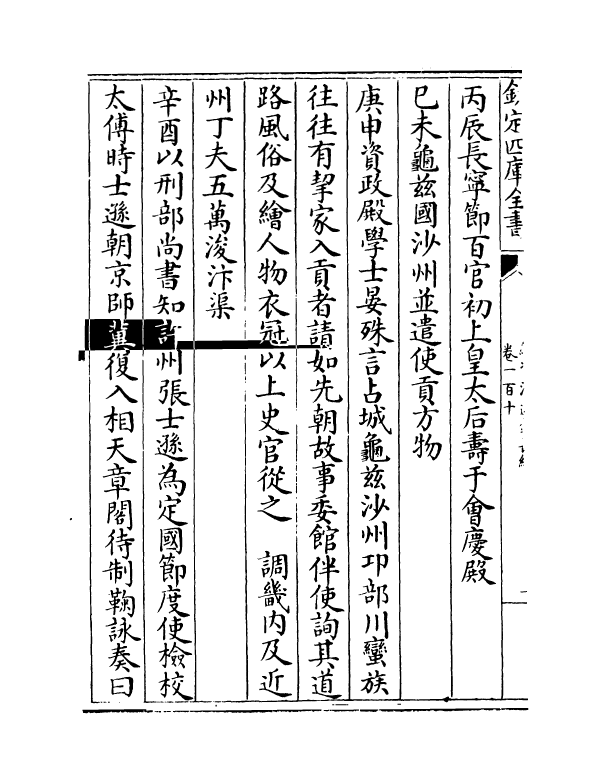 欽定四庫全書
卷一百十
丙辰長寧節百官初上皇太后壽于會慶殿
巳未龜茲國沙州並遣使貢方物
庚申資政殿學士晏殊言占城龜茲沙州卭部川蠻族
往往有挈家入貢者請如先朝故事委館伴使詢其道
路風俗及繪人物衣冠以上史官從之　調畿內及近
州丁夫五萬浚汴渠
辛酉以刑部尚書知許州張士遜為定國節度使檢校
太傅時士遜朝京師冀復入相天章閣待制鞠詠奏曰